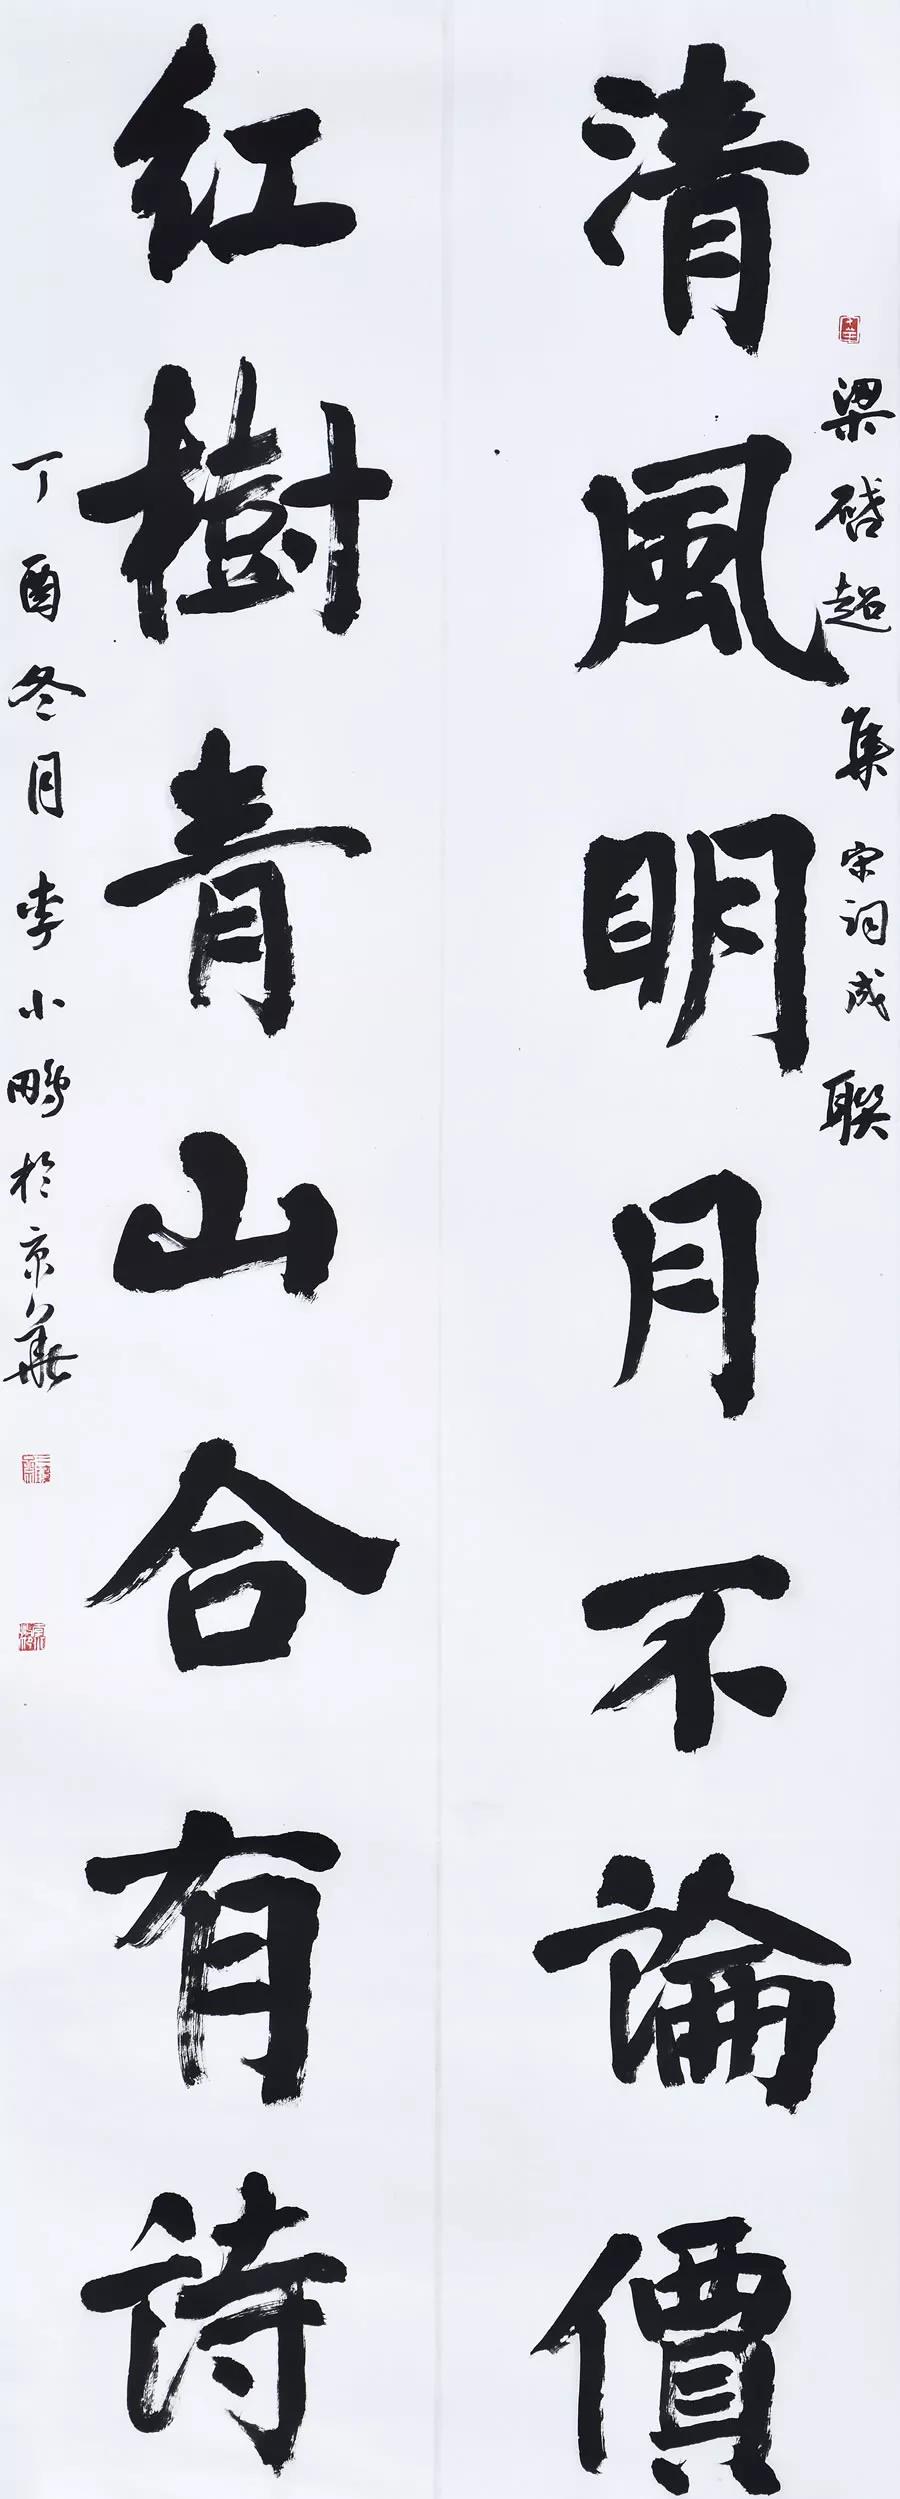 梁啓超集宋词成联
清風明月不論價
紅樹青山合有詩
丁酉冬月李小鹏於京華